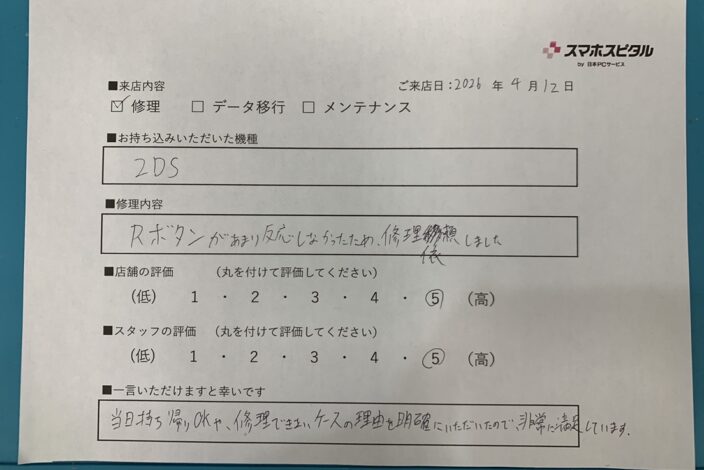 スマホスピタル
by 日本PCサービス
■来店内容
ご来店日:2026 年 4 月 12 日
☑ 修理 □ データ移行 □ メンテナンス
■お持ち込みいただいた機種
2DS
■修理内容
Rボタンがあまり反応しなかったため、修理依頼しました
■店舗の評価 (丸を付けて評価してください)
(低) 1 ・ 2 ・ 3 ・ 4 ・ ⑤ (高)
■スタッフの評価 (丸を付けて評価してください)
(低) 1 ・ 2 ・ 3 ・ 4 ・ ⑤ (高)
■一言いただけますと幸いです
当日持ち帰りOKや、修理できないケースの理由を明確にいただいたので、非常に満足しています。